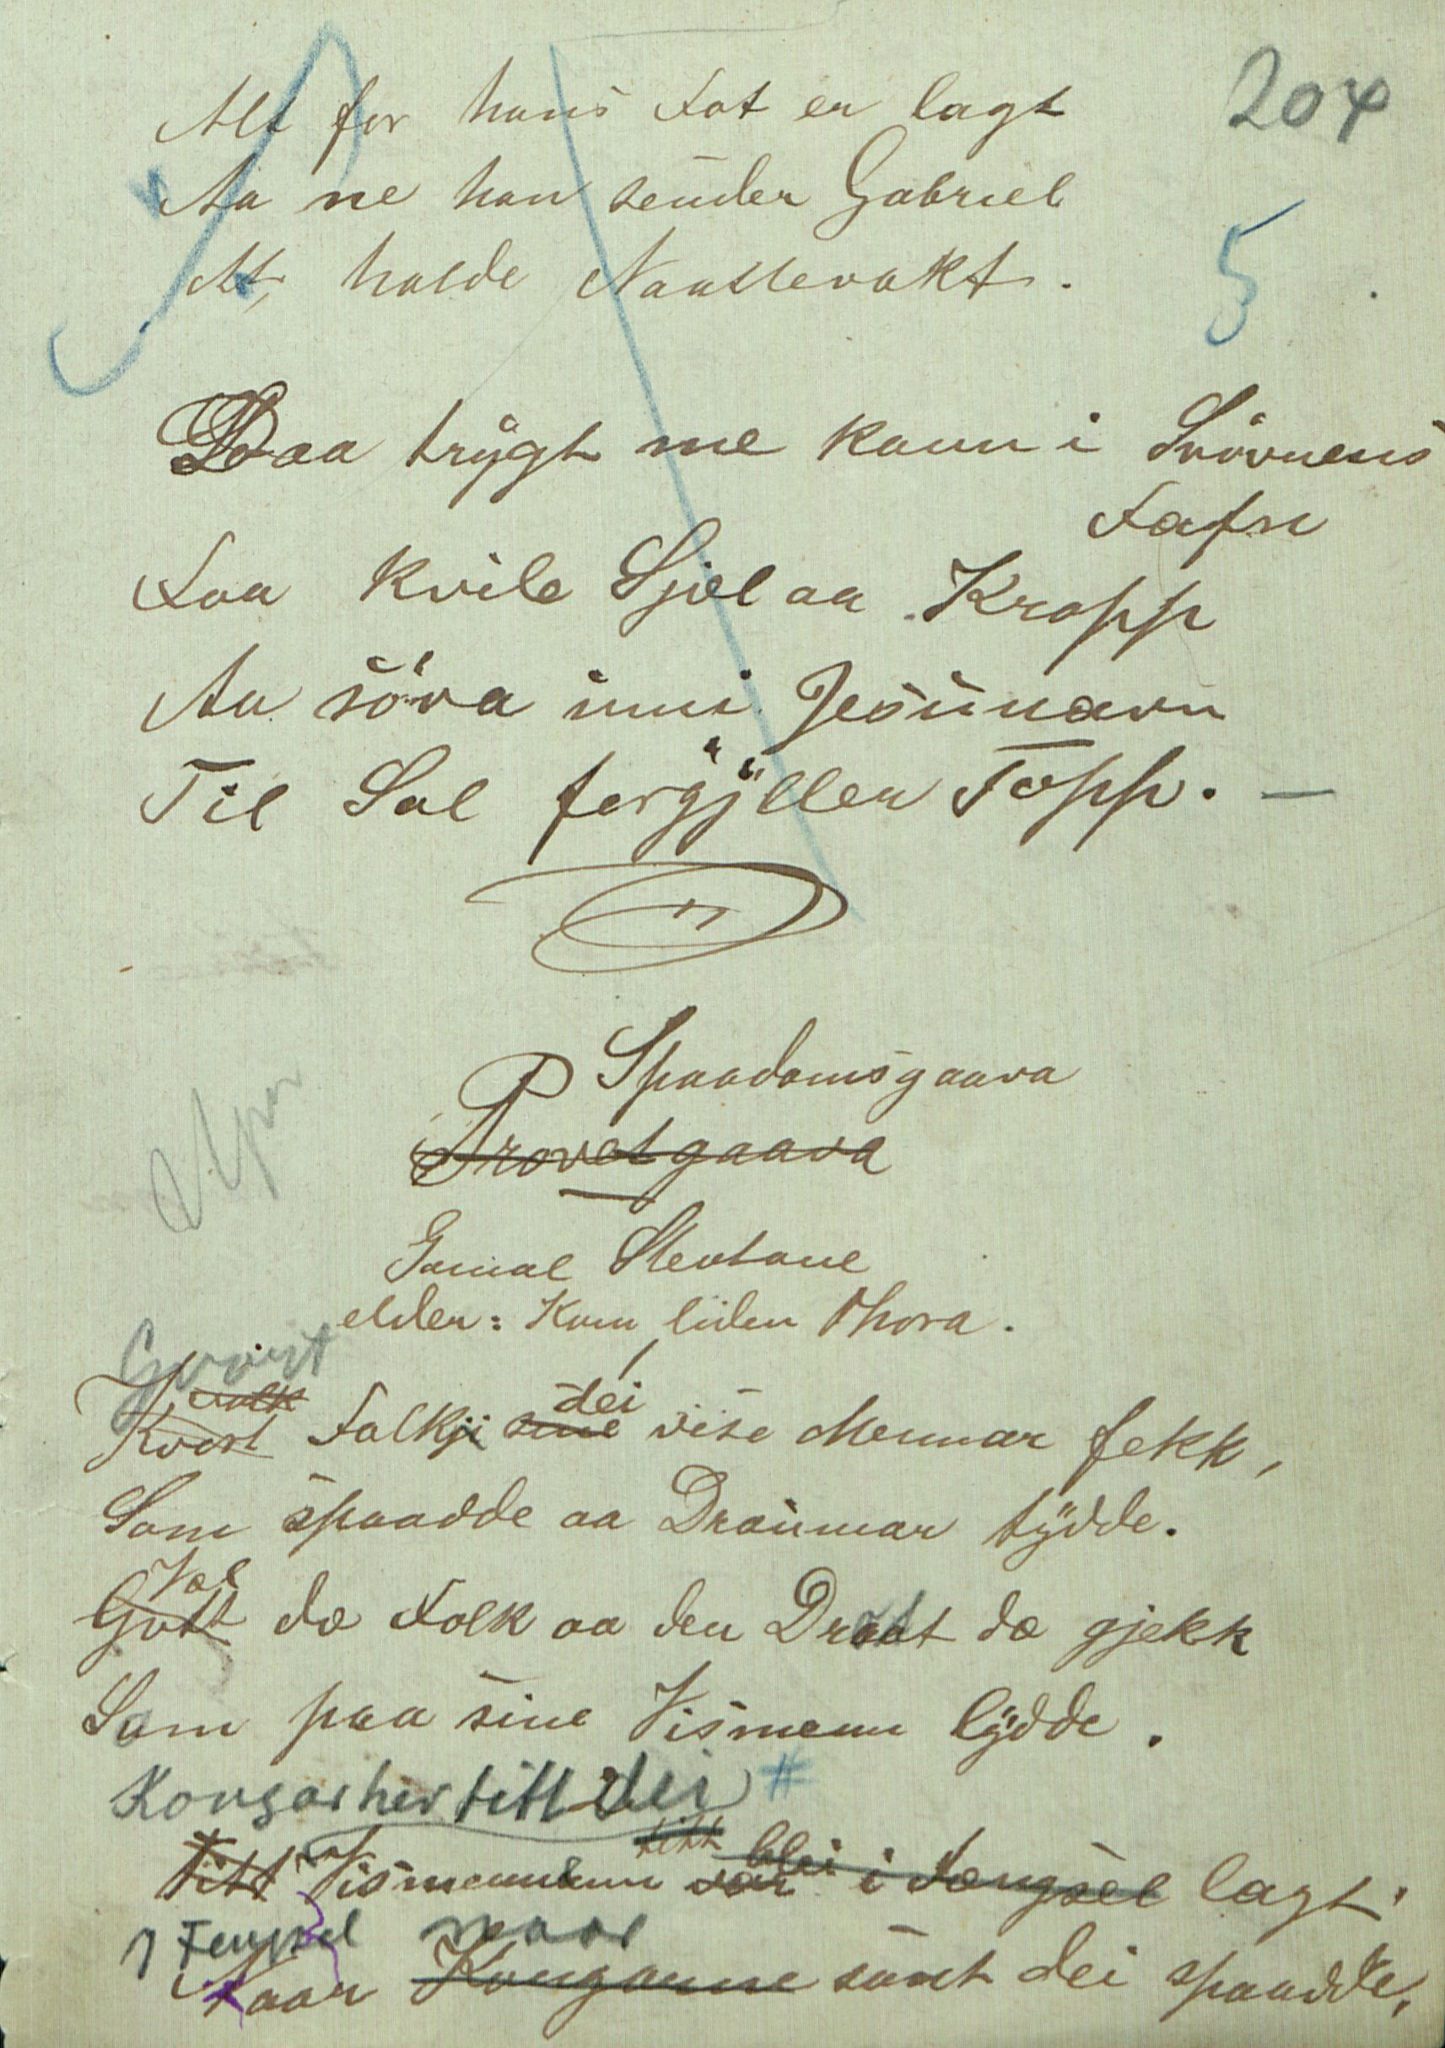 Alt for hans Fot er lagt
204
Aa ne han sender Gabriel
At halde Naattevakt.
5
Daa trygt me kann i Svövnens
Fafn
Faa kvile Sjæl aa Kropp
Aa söva inni Jesunavn
Til Sol forgyller Topp. —
Spaadomsgaava
Provetgaava
Gamal Slevtone
elder: Kom liden Thora.
Gvart
Kvart Folkji sine dei vise Mennar fekk,
Som spaadde aa Draumar tydde.
Væl
Gott dæ Folk aa den Drott dæ gjekk
Som paa sine Vismenn lydde.
Kongar her titt dei #
titt blei
Titt Vismennenn var i Fængsel lagt,
I Fengsel naar
Naar Konganne sant dei spaadde,